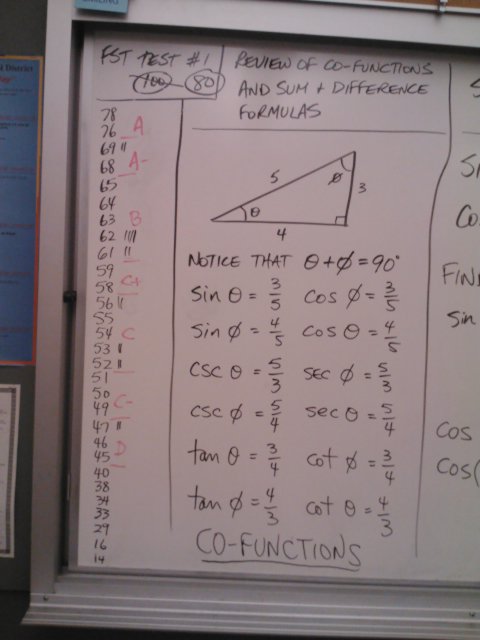 FST TEST #1
100 80
78
76 A
69 11
68 A-
65
64
63 B
62 1111
61 11
59
58 C+
56 11
55
54 C
53 11
52 11
51
50
49 C-
47 11
46
45 D
40
38
34
33
29
16
14
REVIEW OF CO-FUNCTIONS
AND SUM + DIFFERENCE
FORMULAS
5
θ
ϕ
3
4
NOTICE THAT θ+ϕ=90°
sin θ = 3/5 cos ϕ = 3/5
sin ϕ = 4/5 cos θ = 4/5
csc θ = 5/3 sec ϕ = 5/3
csc ϕ = 5/4 sec θ = 5/4
tan θ = 3/4 cot ϕ = 3/4
tan ϕ = 4/3 cot θ = 4/3
CO-FUNCTIONS
Sin
cos(